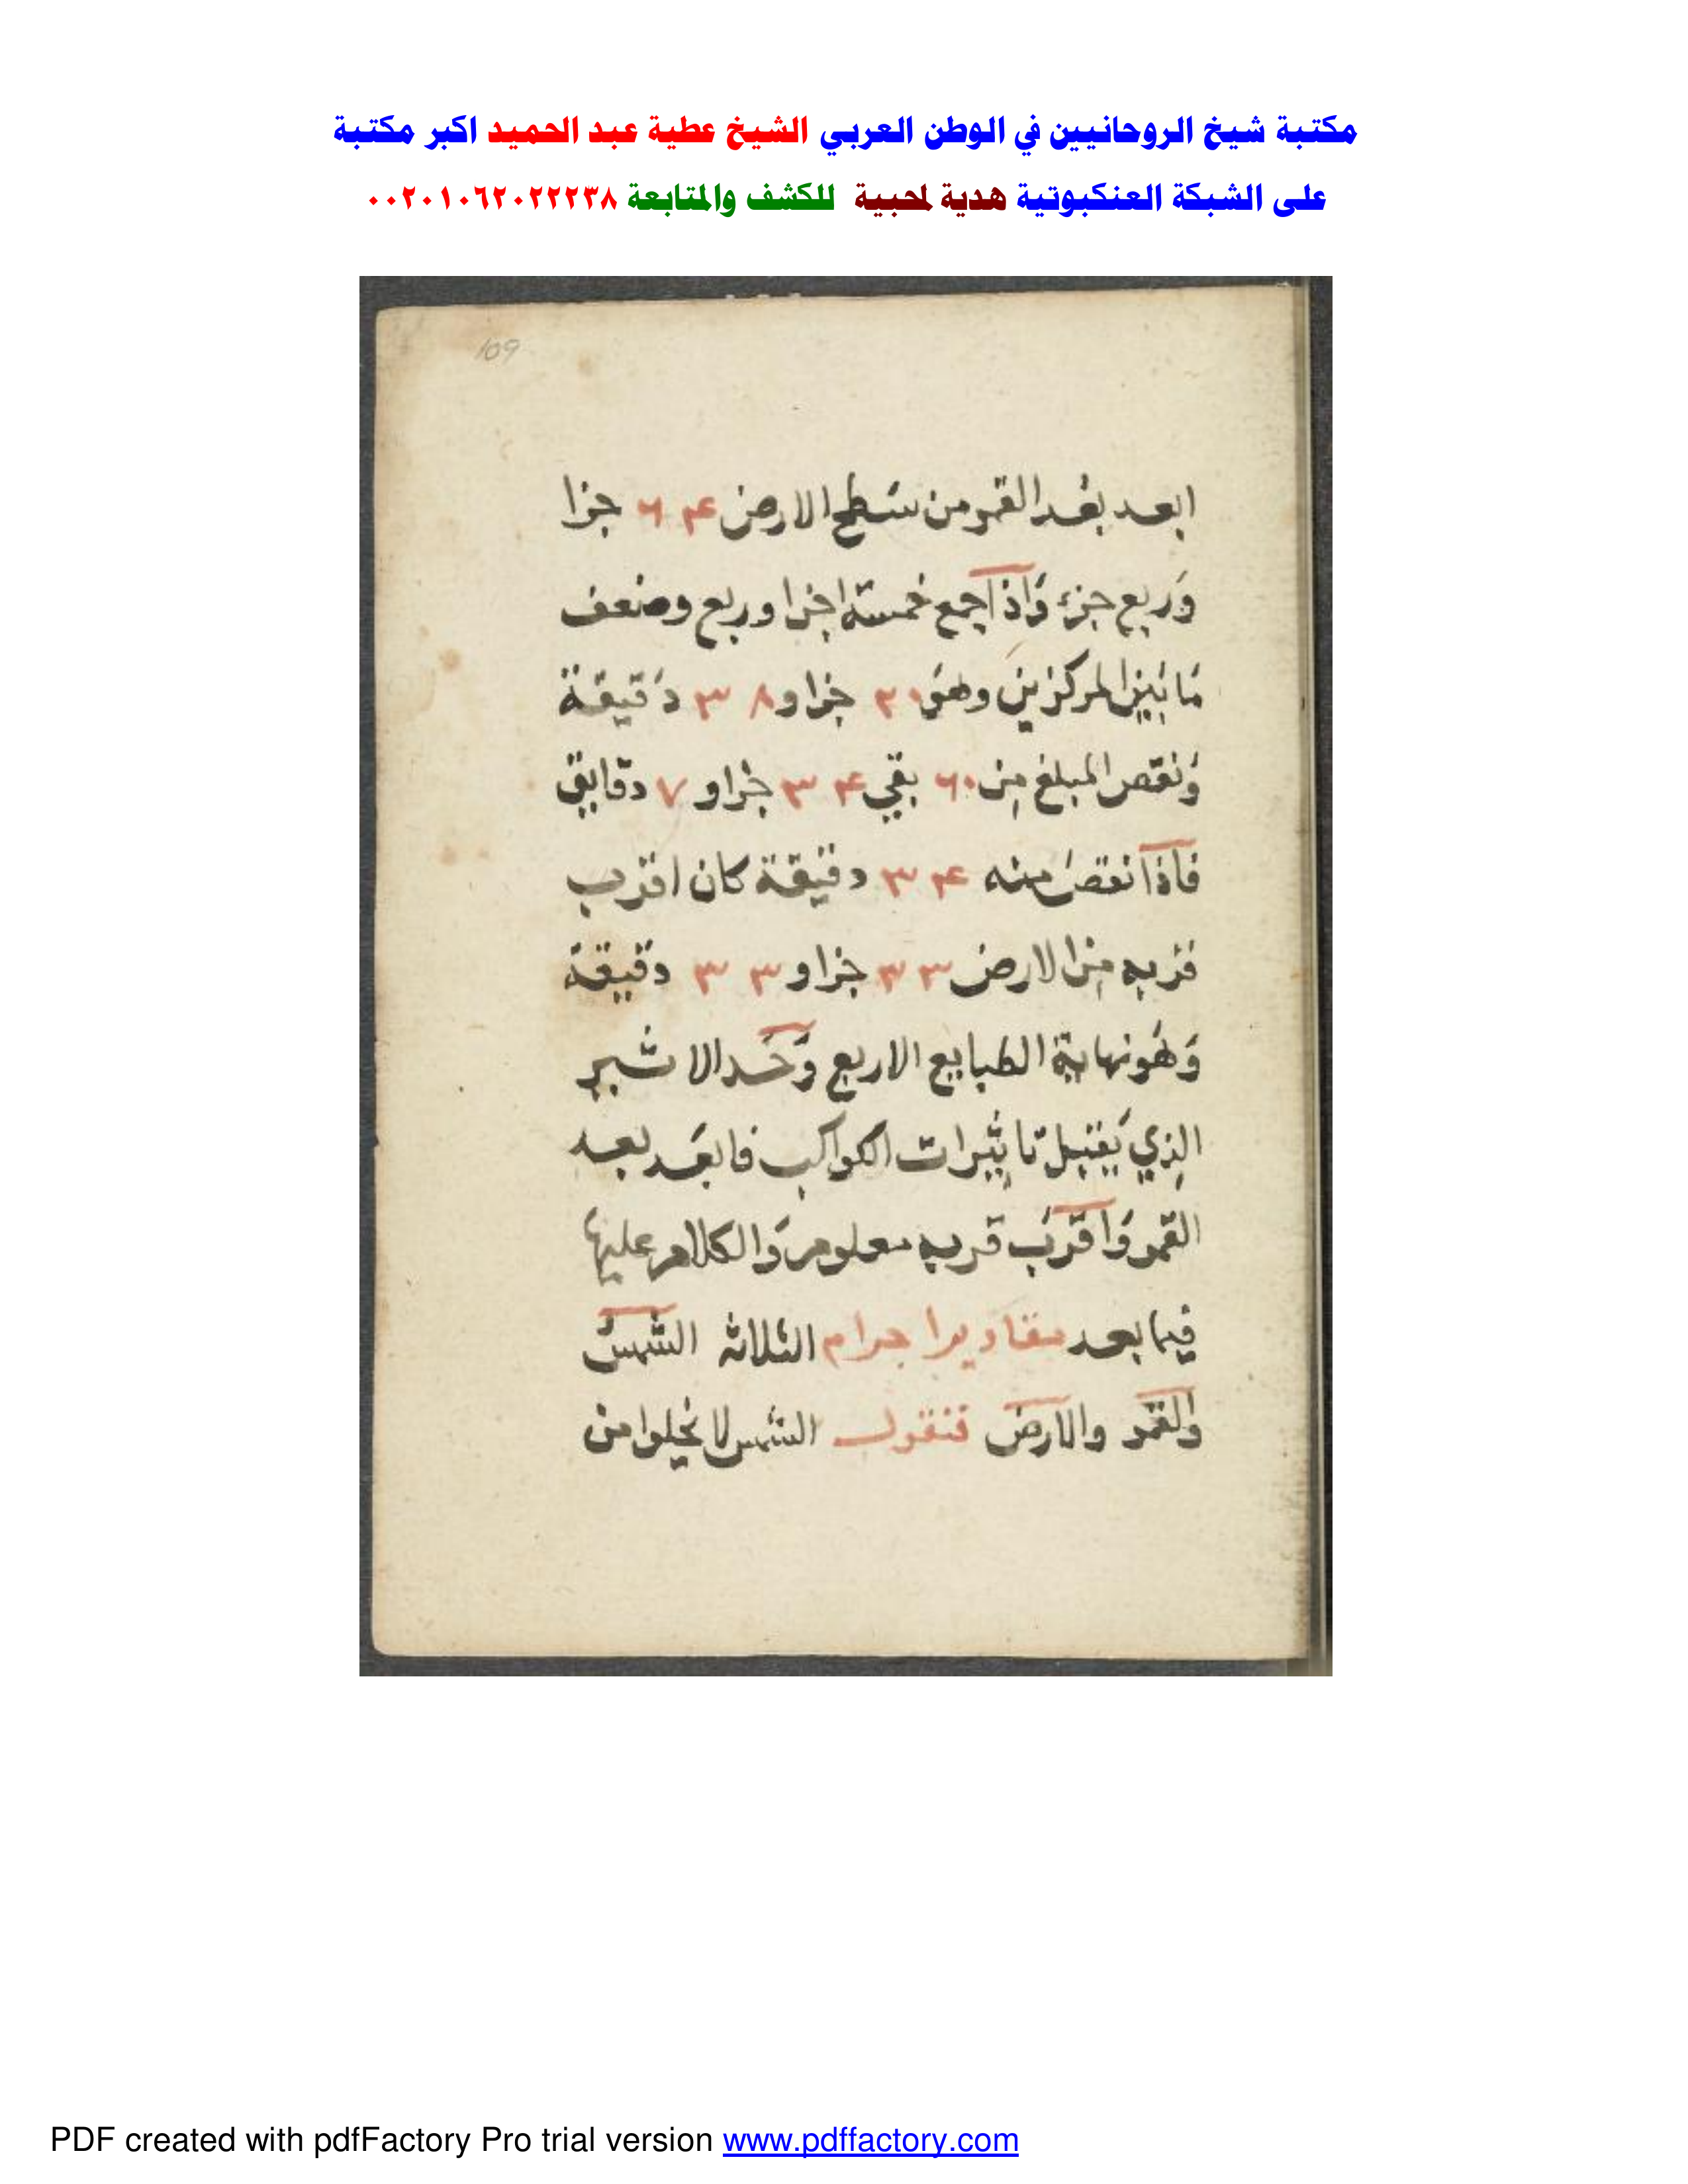 مكتبة شيخ الروحانيين في الوطن العربي الشيخ عطية عبد الحميد اكبر مكتبة
على الشبكة العنكبوتية هدية لمحبية للكشف والمتابعة ٠٠٢٠١٠٦٢٠٢٢٢٣٨
109
ابعد بعد القمر من سطح الارض ۶۴ جزا
وربع جزء واذا جمع خمسة اجزا وربع وضعف
ما بين المركزين وهو ۲۰ جزا و ۳۸ دقيقة
ونقص المبلغ من ۶۰ بقي ۳۴ جزا و ۷ دقايق
فاذا نقص منه ۳۴ دقيقة كان اقرب
قربه من الارض ۳۳ جزا و ۳۳ دقيقة
وهو نهاية الطبايع الاربع وحد الاثير
الذي يقبل تاثيرات الكواكب فابعد بعد
القمر واقرب قربه معلوم والكلام عليها
فيما بعد مقادير اجرام الثلاثة الشمس
والقمر والارض فنقول الشمس لا تخلوا من
PDF created with pdfFactory Pro trial version www.pdffactory.com